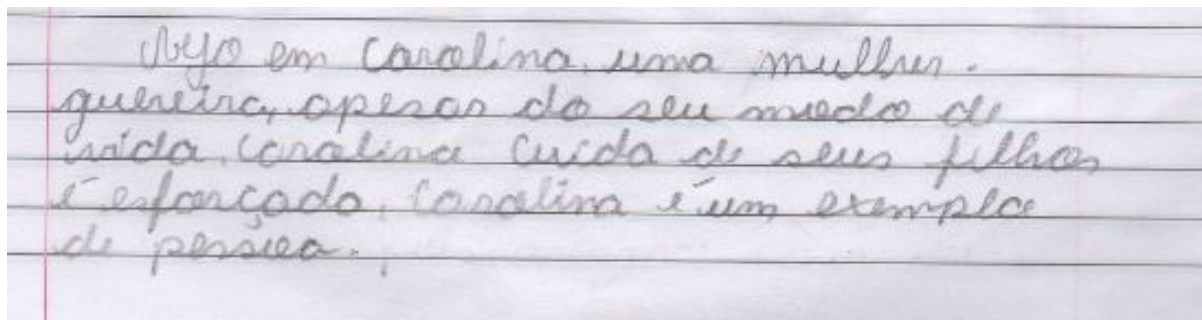 Vejo em Carolina, uma mulher.
guereira, apesar do seu modo de
vida. Carolina cuida de seus filhos
é esforçado, Carolina é um exemplo
de pessoa.